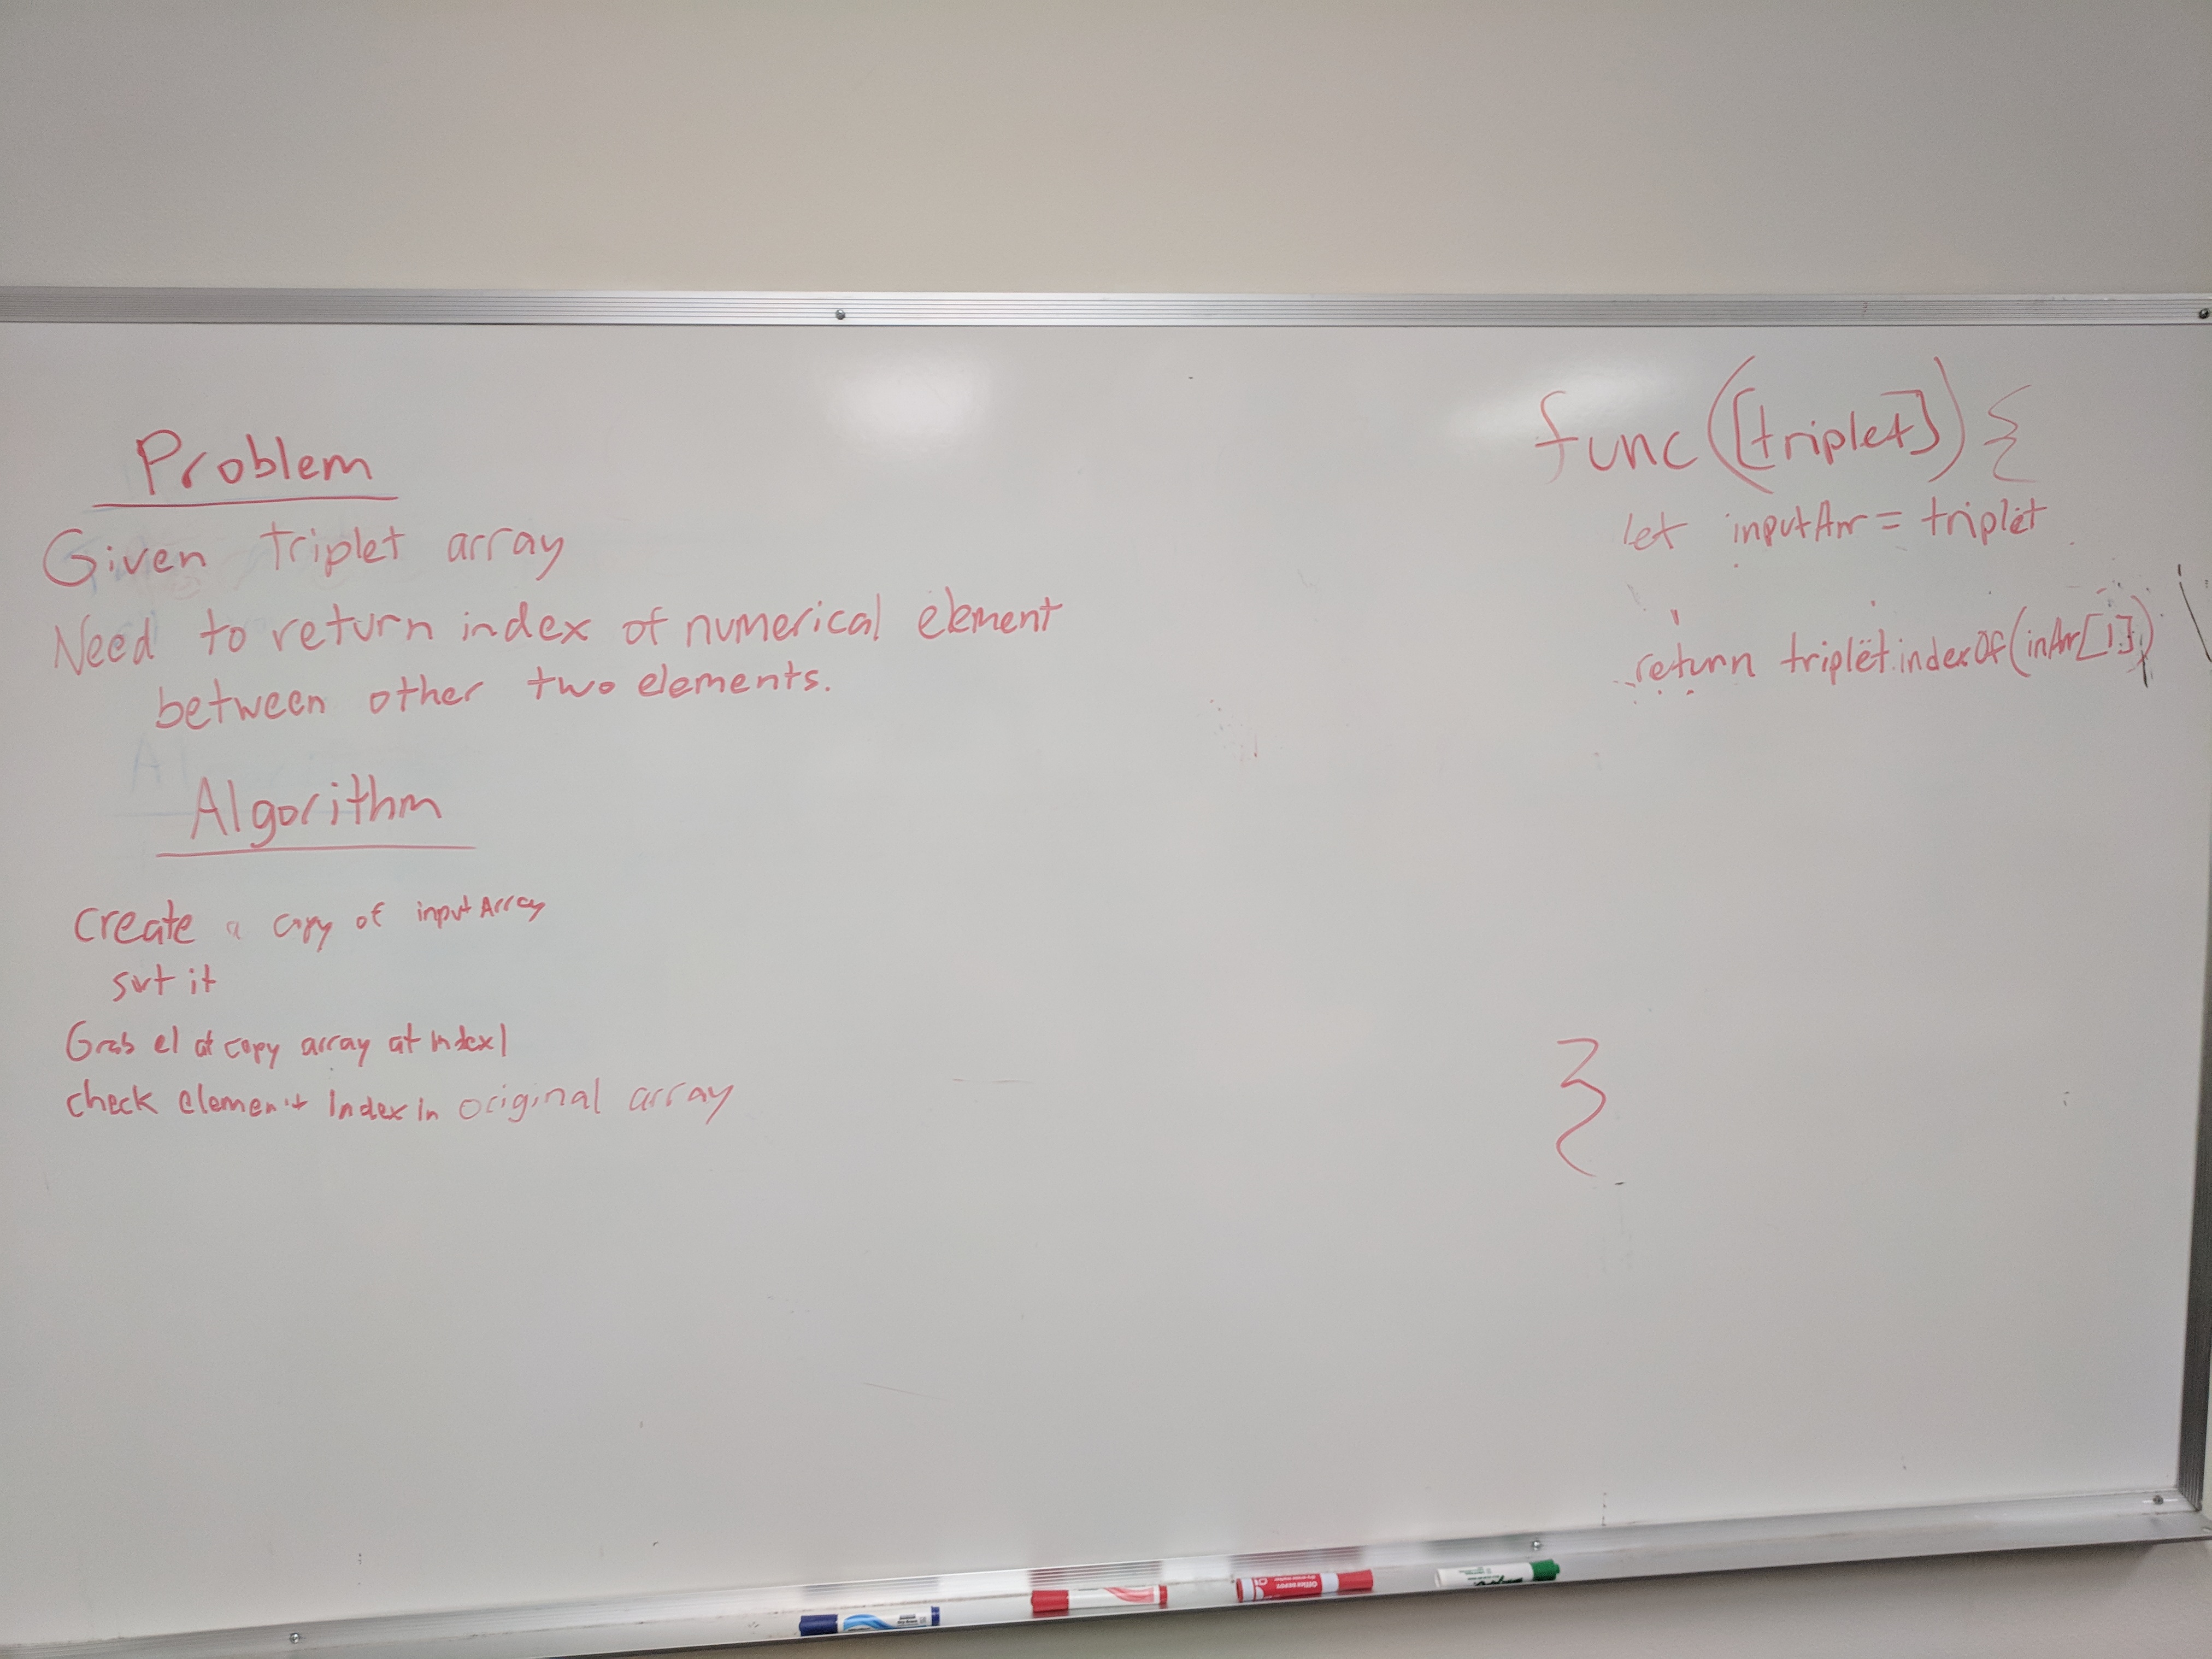 Problem
Given triplet array
Need to return index of numerical element
between other two elements.
Algorithm
Create a copy of inputArray
sort it
Grab el at copy array at index 1
check element index in original array
func([triplet]){
let inputArr = triplet
return triplet.indexOf(inArr[1])
}
Office DEPOT